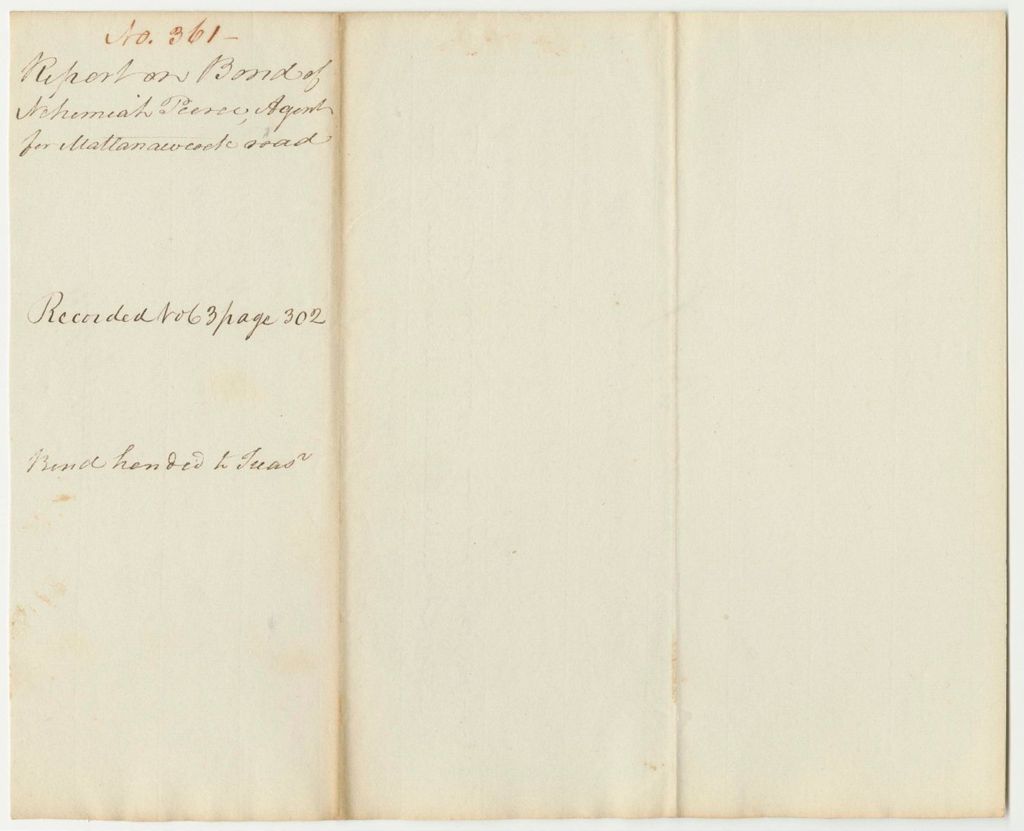 No. 361-
Report on Bond of
Nehemiah Peirce, Agent
for Mattanawcook road
Recorded Vol 3 page 302
Bond handed to Treasr